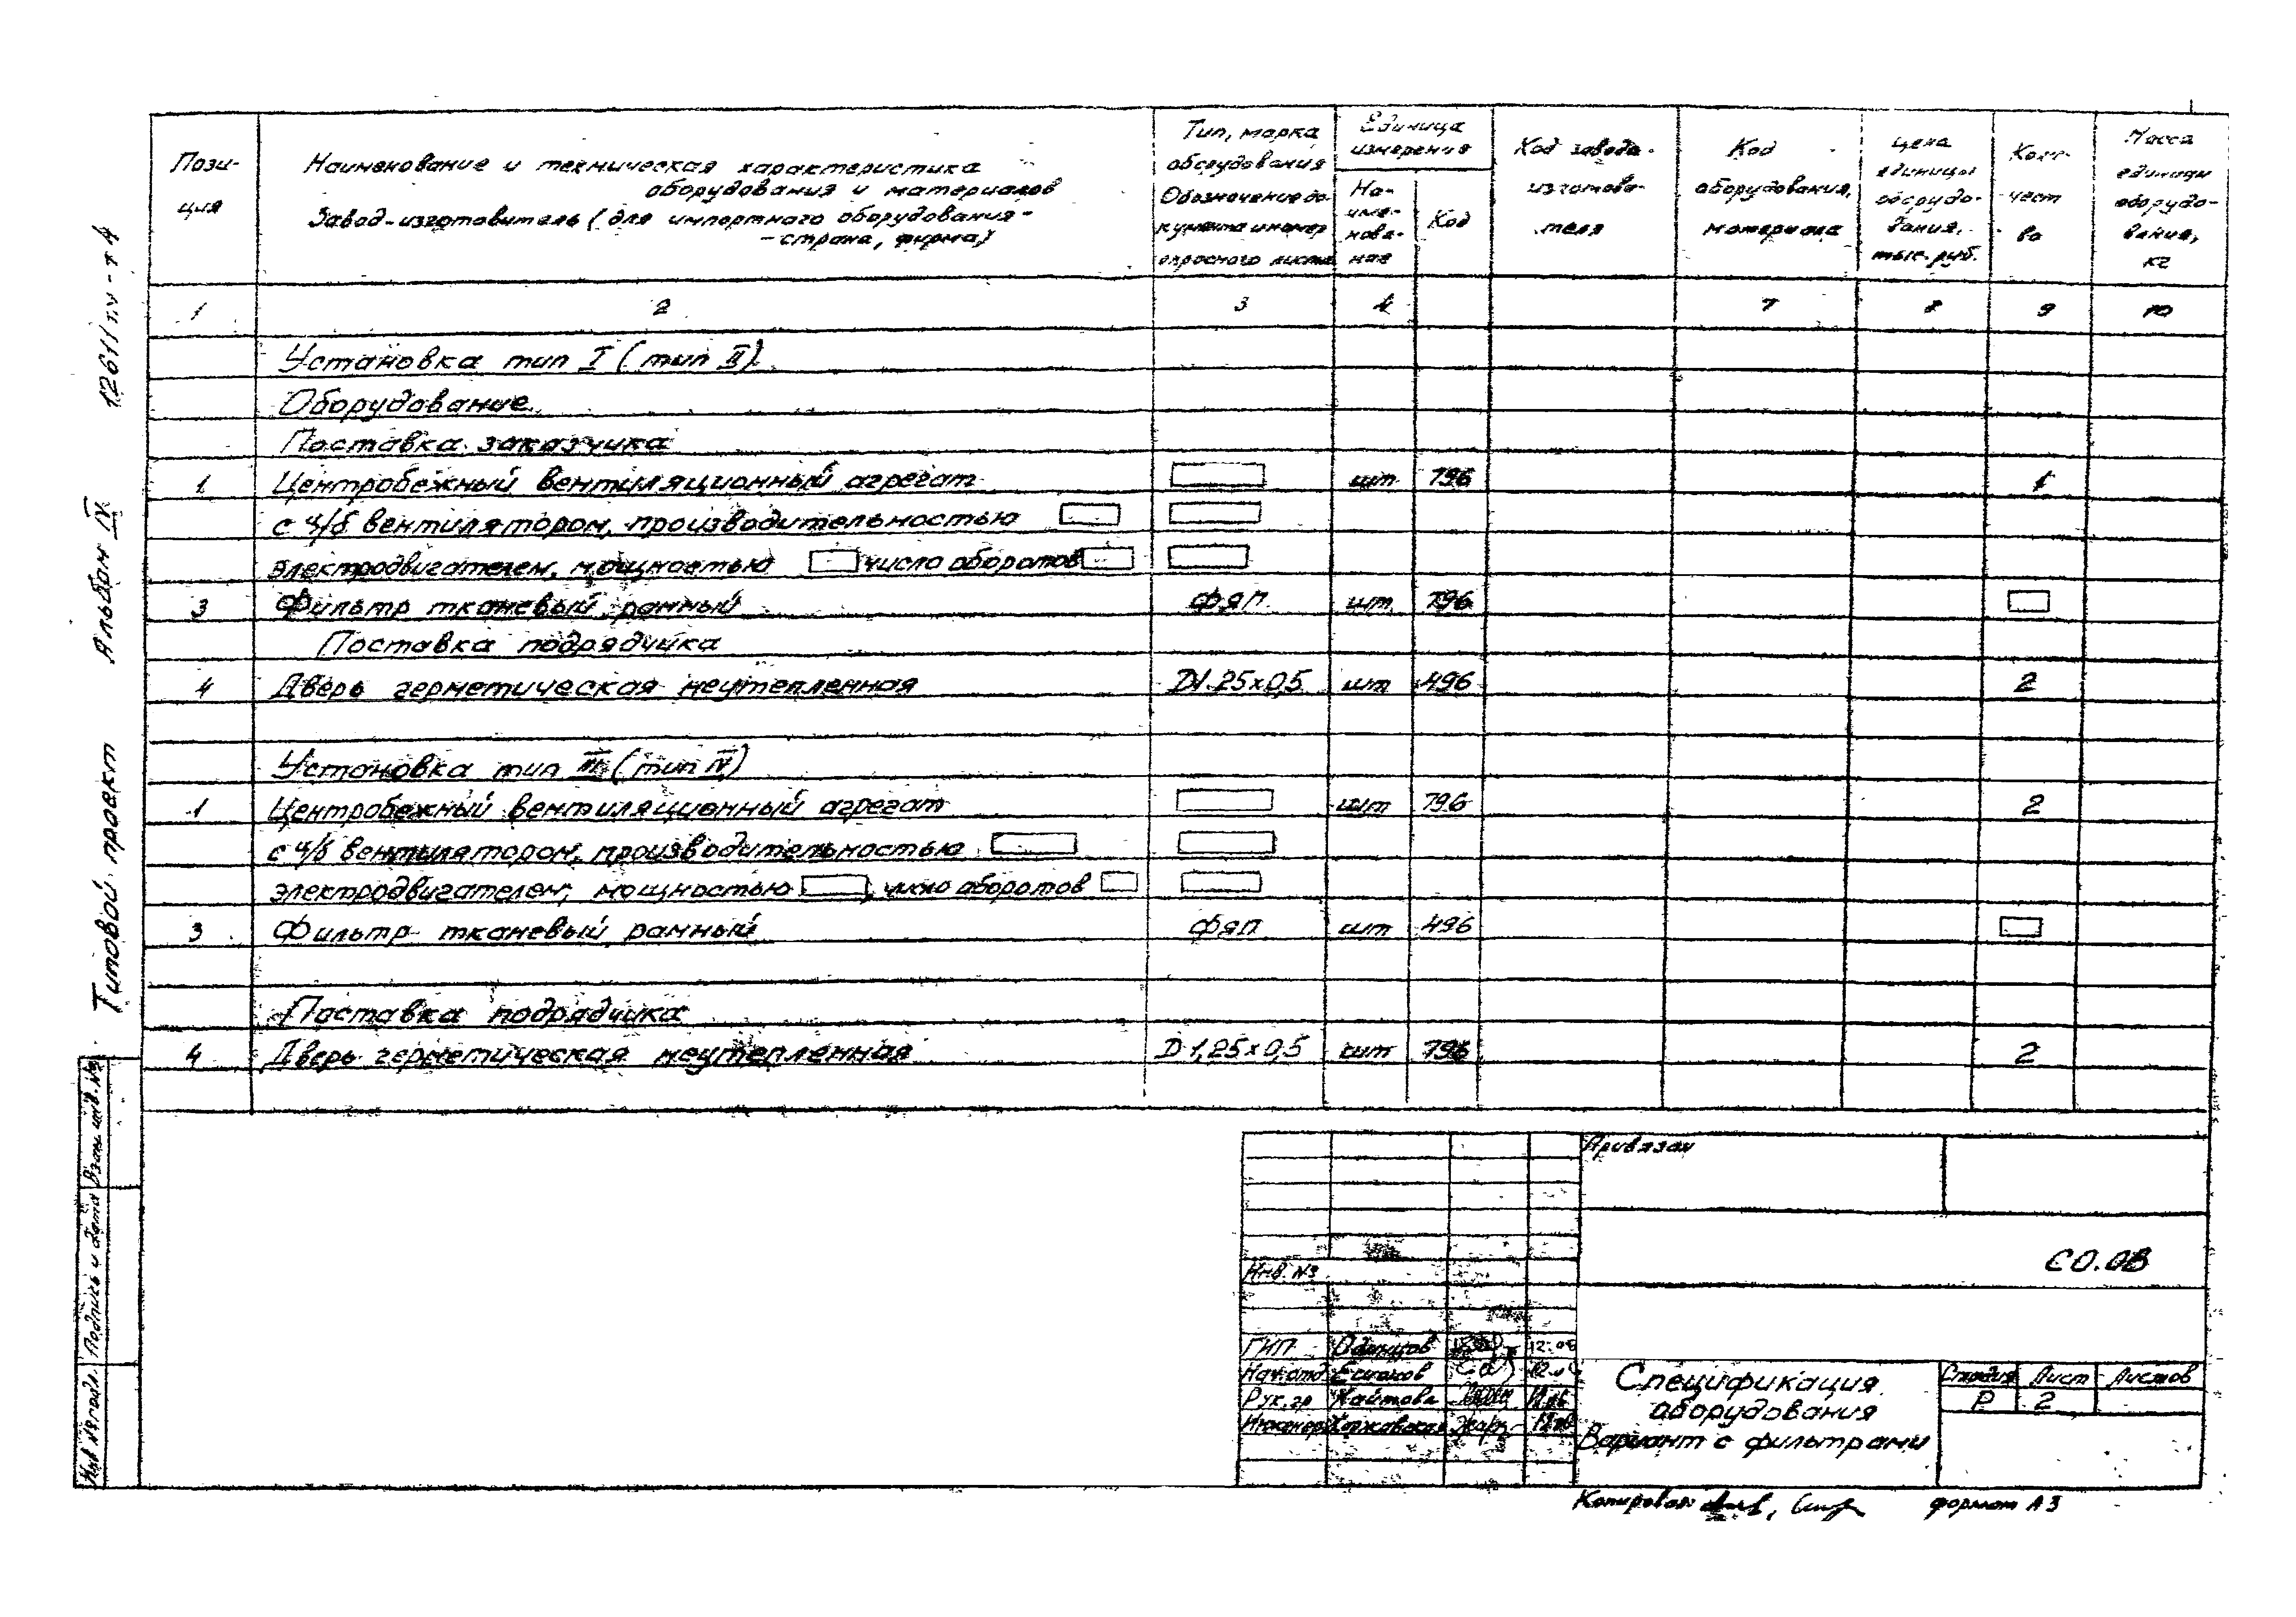 Пози-
ция
Наименование и техническая характеристика
оборудования и материалов
Завод-изготовитель (для импортного оборудования -
- страна, фирма)
Тип, марка
оборудования
Обозначение до-
кумента и номер
опросного листа
Единица
измерения
На-
име-
нова-
ние
Код
Код завода-
изготови-
теля
Код
оборудования,
материала
Цена
единицы
оборудо-
вания,
тыс. руб.
Коли-
чест
во
Масса
единицы
оборудо-
вания,
кг
1 2 3 4 7 8 9 10
Установка тип I (тип II)
Оборудование
Поставка заказчика
1 Центробежный вентиляционный агрегат шт 796 1
с ц/б вентилятором, производительностью
электродвигателем, мощностью число оборотов
3 Фильтр тканевый рамный ФЯП шт 796
Поставка подрядчика
4 Дверь герметическая неутепленная Д1.25х0,5 шт 496 2
Установка тип III (тип IV)
1 Центробежный вентиляционный агрегат шт 796 2
с ц/б вентилятором, производительностью
электродвигателем, мощностью , число оборотов
3 Фильтр тканевый рамный ФЯП шт 496
Поставка подрядчика
4 Дверь герметическая неутепленная Д 1,25х0,5 шт 796 2
Типовой проект Альбом IV 12611/
Инв. № подл. Подпись и дата Взам. инв. №
Привязан
Инв. №
СО.ОВ
ГИП Одинцов
Нач.отд
Рук. гр
Инженер
Спецификация
оборудования
Вариант с фильтрами
Стадия Лист Листов
Р 2
Копировал формат А3